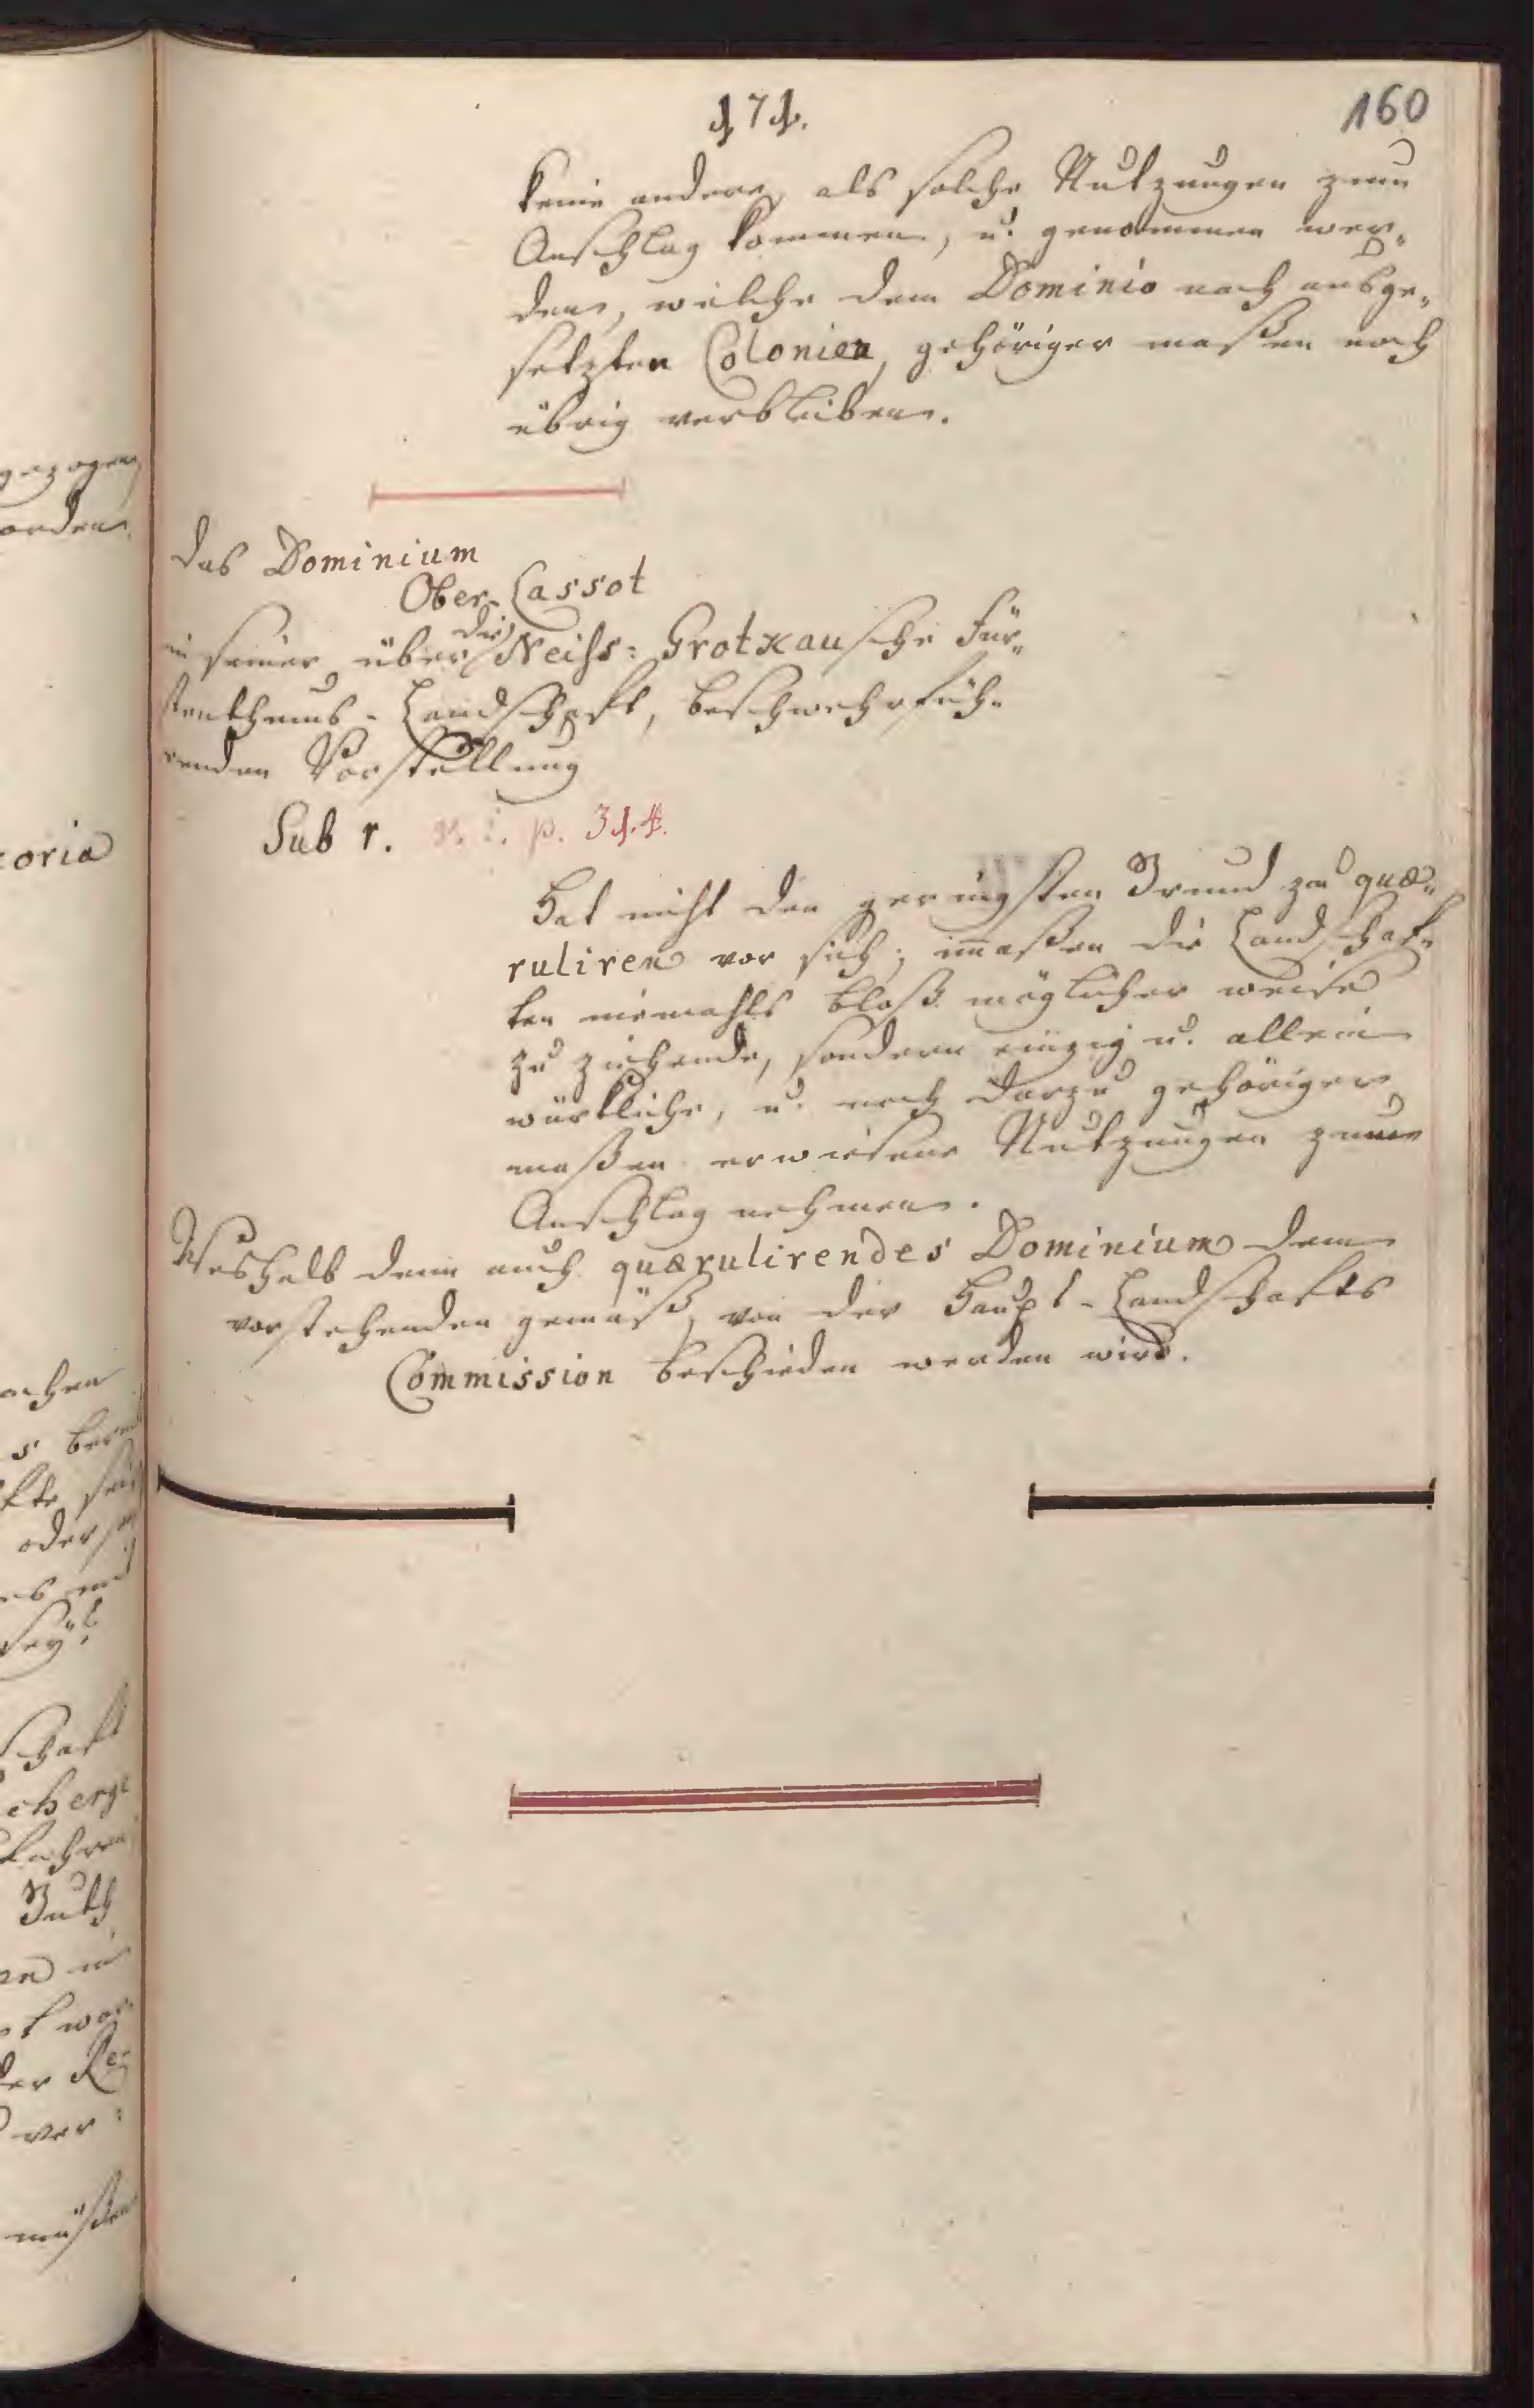 171.
160
keine andere, als solche Nutzungen zum
Anschlag kommen, u. genommen wer-
den, welche dem Dominio nach ausge-
setzten Colonien, gehöriger maßen noch
übrig verbleiben.
das Dominium
Ober-Cassot
in seiner über die Neiss: Grotkausche Für-
stenthums-Landschafft, beschwehrfüh-
renden Vorstellung
Sub r. p. 31.
Hat nicht den geringsten Grund zu quæ-
ruliren vor sich; immaßen die Landschaf-
ten niemahls bloß möglicher weise
zu ziehende, sondern einzig u. allein
würkliche, u. noch darzu gehöriger
maßen erwiesene Nutzungen zum
Anschlag nehmen.
Weshalb denn auch quærulirendes Dominium dem
vorstehenden gemäß, von der Haupt-Landschafts
Commission beschieden werden wird.